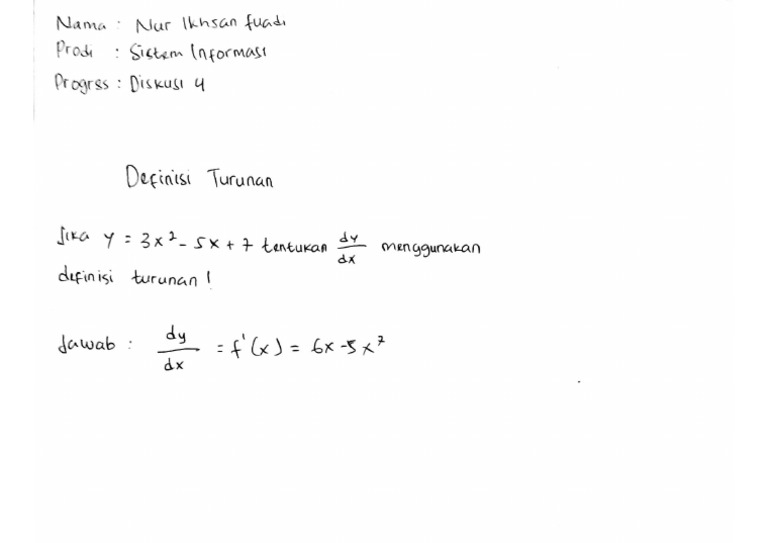 Nama : Nur Ikhsan fuadi
Prodi : Sistem Informasi
Progres : Diskusi 4
Definisi Turunan
Jika y = 3x² - 5x + 7 tentukan dy/dx menggunakan
definisi turunan !
Jawab : dy/dx = f'(x) = 6x - 5x²